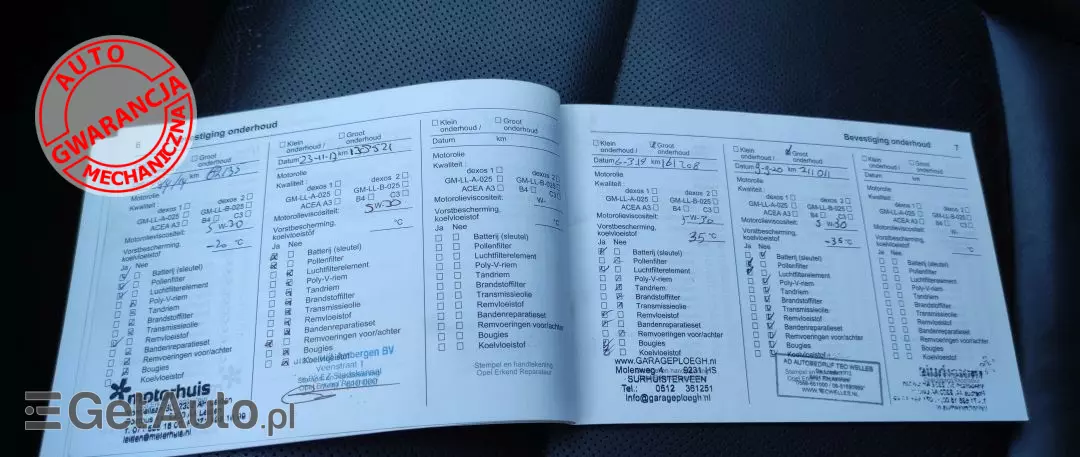 AUTO
GWARANCJA
MECHANICZNA
6
onderhoud
Groot
onderhoud
km
Motorolie
Kwaliteit :
dexos 1 dexos 2
GM-LL-A-025 GM-LL-B-025
ACEA A3 B4 C3
Motorolieviscositeit: 5 W-30
Vorstbescherming,
koelvloeistof -20 °C
Ja Nee
Batterij (sleutel)
Pollenfilter
Luchtfilterelement
Poly-V-riem
Tandriem
Brandstoffilter
Transmissieolie
Remvloeistof
Bandenreparatieset
Remvoeringen voor/achter
Bougies
Koelvloeistof
motorhuis
Klein onderhoud / Groot onderhoud
Datum 23-11- km 135521
Motorolie
Kwaliteit :
dexos 1 dexos 2
GM-LL-A-025 GM-LL-B-025
ACEA A3 B4 C3
Motorolieviscositeit: 5 W-30
Vorstbescherming,
koelvloeistof °C
Ja Nee
Batterij (sleutel)
Pollenfilter
Luchtfilterelement
Poly-V-riem
Tandriem
Brandstoffilter
Transmissieolie
Remvloeistof
Bandenreparatieset
Remvoeringen voor/achter
Bougies
Koelvloeistof
Veenstraat 1
Klein onderhoud / Groot onderhoud
Datum km
Motorolie
Kwaliteit :
dexos 1 dexos 2
GM-LL-A-025 GM-LL-B-025
ACEA A3 B4 C3
Motorolieviscositeit: W-
Vorstbescherming,
koelvloeistof °C
Ja Nee
Batterij (sleutel)
Pollenfilter
Luchtfilterelement
Poly-V-riem
Tandriem
Brandstoffilter
Transmissieolie
Remvloeistof
Bandenreparatieset
Remvoeringen voor/achter
Bougies
Koelvloeistof
Stempel en handtekening
Opel Erkend Reparateur
Bevestiging onderhoud 7
Klein onderhoud / Groot onderhoud
Datum 6-3-19 km 161208
Motorolie
Kwaliteit :
dexos 1 dexos 2
GM-LL-A-025 GM-LL-B-025
ACEA A3 B4 C3
Motorolieviscositeit: 5 W-30
Vorstbescherming,
koelvloeistof 35 °C
Ja Nee
Batterij (sleutel)
Pollenfilter
Luchtfilterelement
Poly-V-riem
Tandriem
Brandstoffilter
Transmissieolie
Remvloeistof
Bandenreparatieset
Remvoeringen voor/achter
Bougies
Koelvloeistof
www.GARAGEPLOEGH.nl
Molenweg 4 9231 HS
SURHUISTERVEEN
Tel.: 0512 361251
info@garageploegh.nl
Klein onderhoud / Groot onderhoud
Datum km 211011
Motorolie
Kwaliteit :
dexos 1 dexos 2
GM-LL-A-025 GM-LL-B-025
ACEA A3 B4 C3
Motorolieviscositeit: 5 W-30
Vorstbescherming,
koelvloeistof -35 °C
Ja Nee
Batterij (sleutel)
Pollenfilter
Luchtfilterelement
Poly-V-riem
Tandriem
Brandstoffilter
Transmissieolie
Remvloeistof
Bandenreparatieset
Remvoeringen voor/achter
Bougies
Koelvloeistof
AD AUTOBEDRIJF TEC WELLES
Klein onderhoud / Groot onderhoud
Datum km
Motorolie
Kwaliteit :
dexos 1 dexos 2
GM-LL-A-025 GM-LL-B-025
ACEA A3 B4 C3
Motorolieviscositeit: W-
Vorstbescherming,
koelvloeistof °C
Ja Nee
Batterij (sleutel)
Pollenfilter
Luchtfilterelement
Poly-V-riem
Tandriem
Brandstoffilter
Transmissieolie
Remvloeistof
Bandenreparatieset
Remvoeringen voor/achter
Bougies
Koelvloeistof
GetAuto.pl